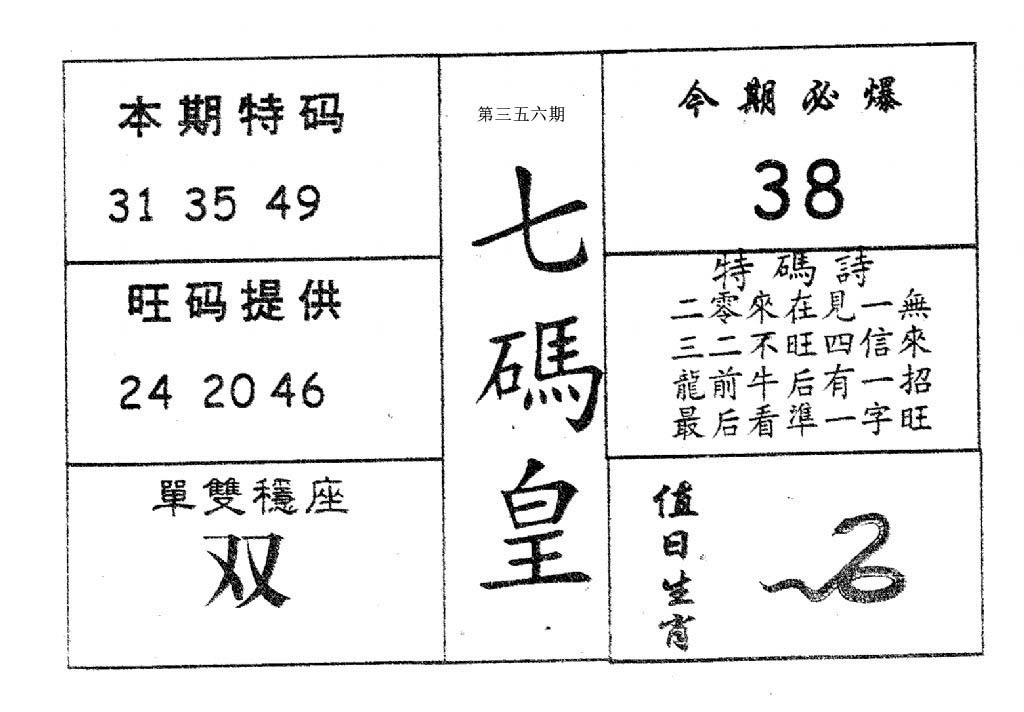 本期特码
31 35 49
旺码提供
24 20 46
單雙穩座
双
第三五六期
七
碼
皇
今期必爆
38
特碼詩
二零來在見一無
三二不旺四信來
龍前牛后有一招
最后看準一字旺
值日生肖